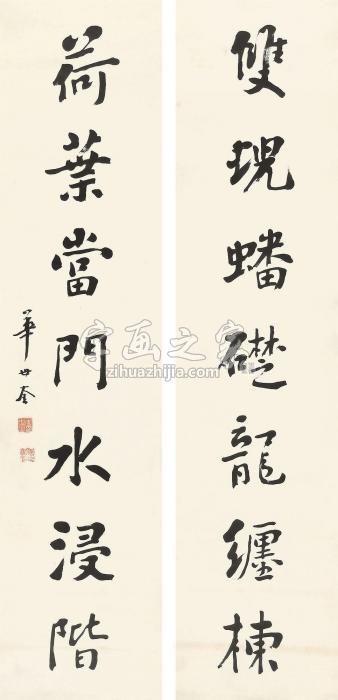 雙猊蟠礎龍纏棟
荷葉當門水浸階
華世奎
字画之家
zihuazhijia.com